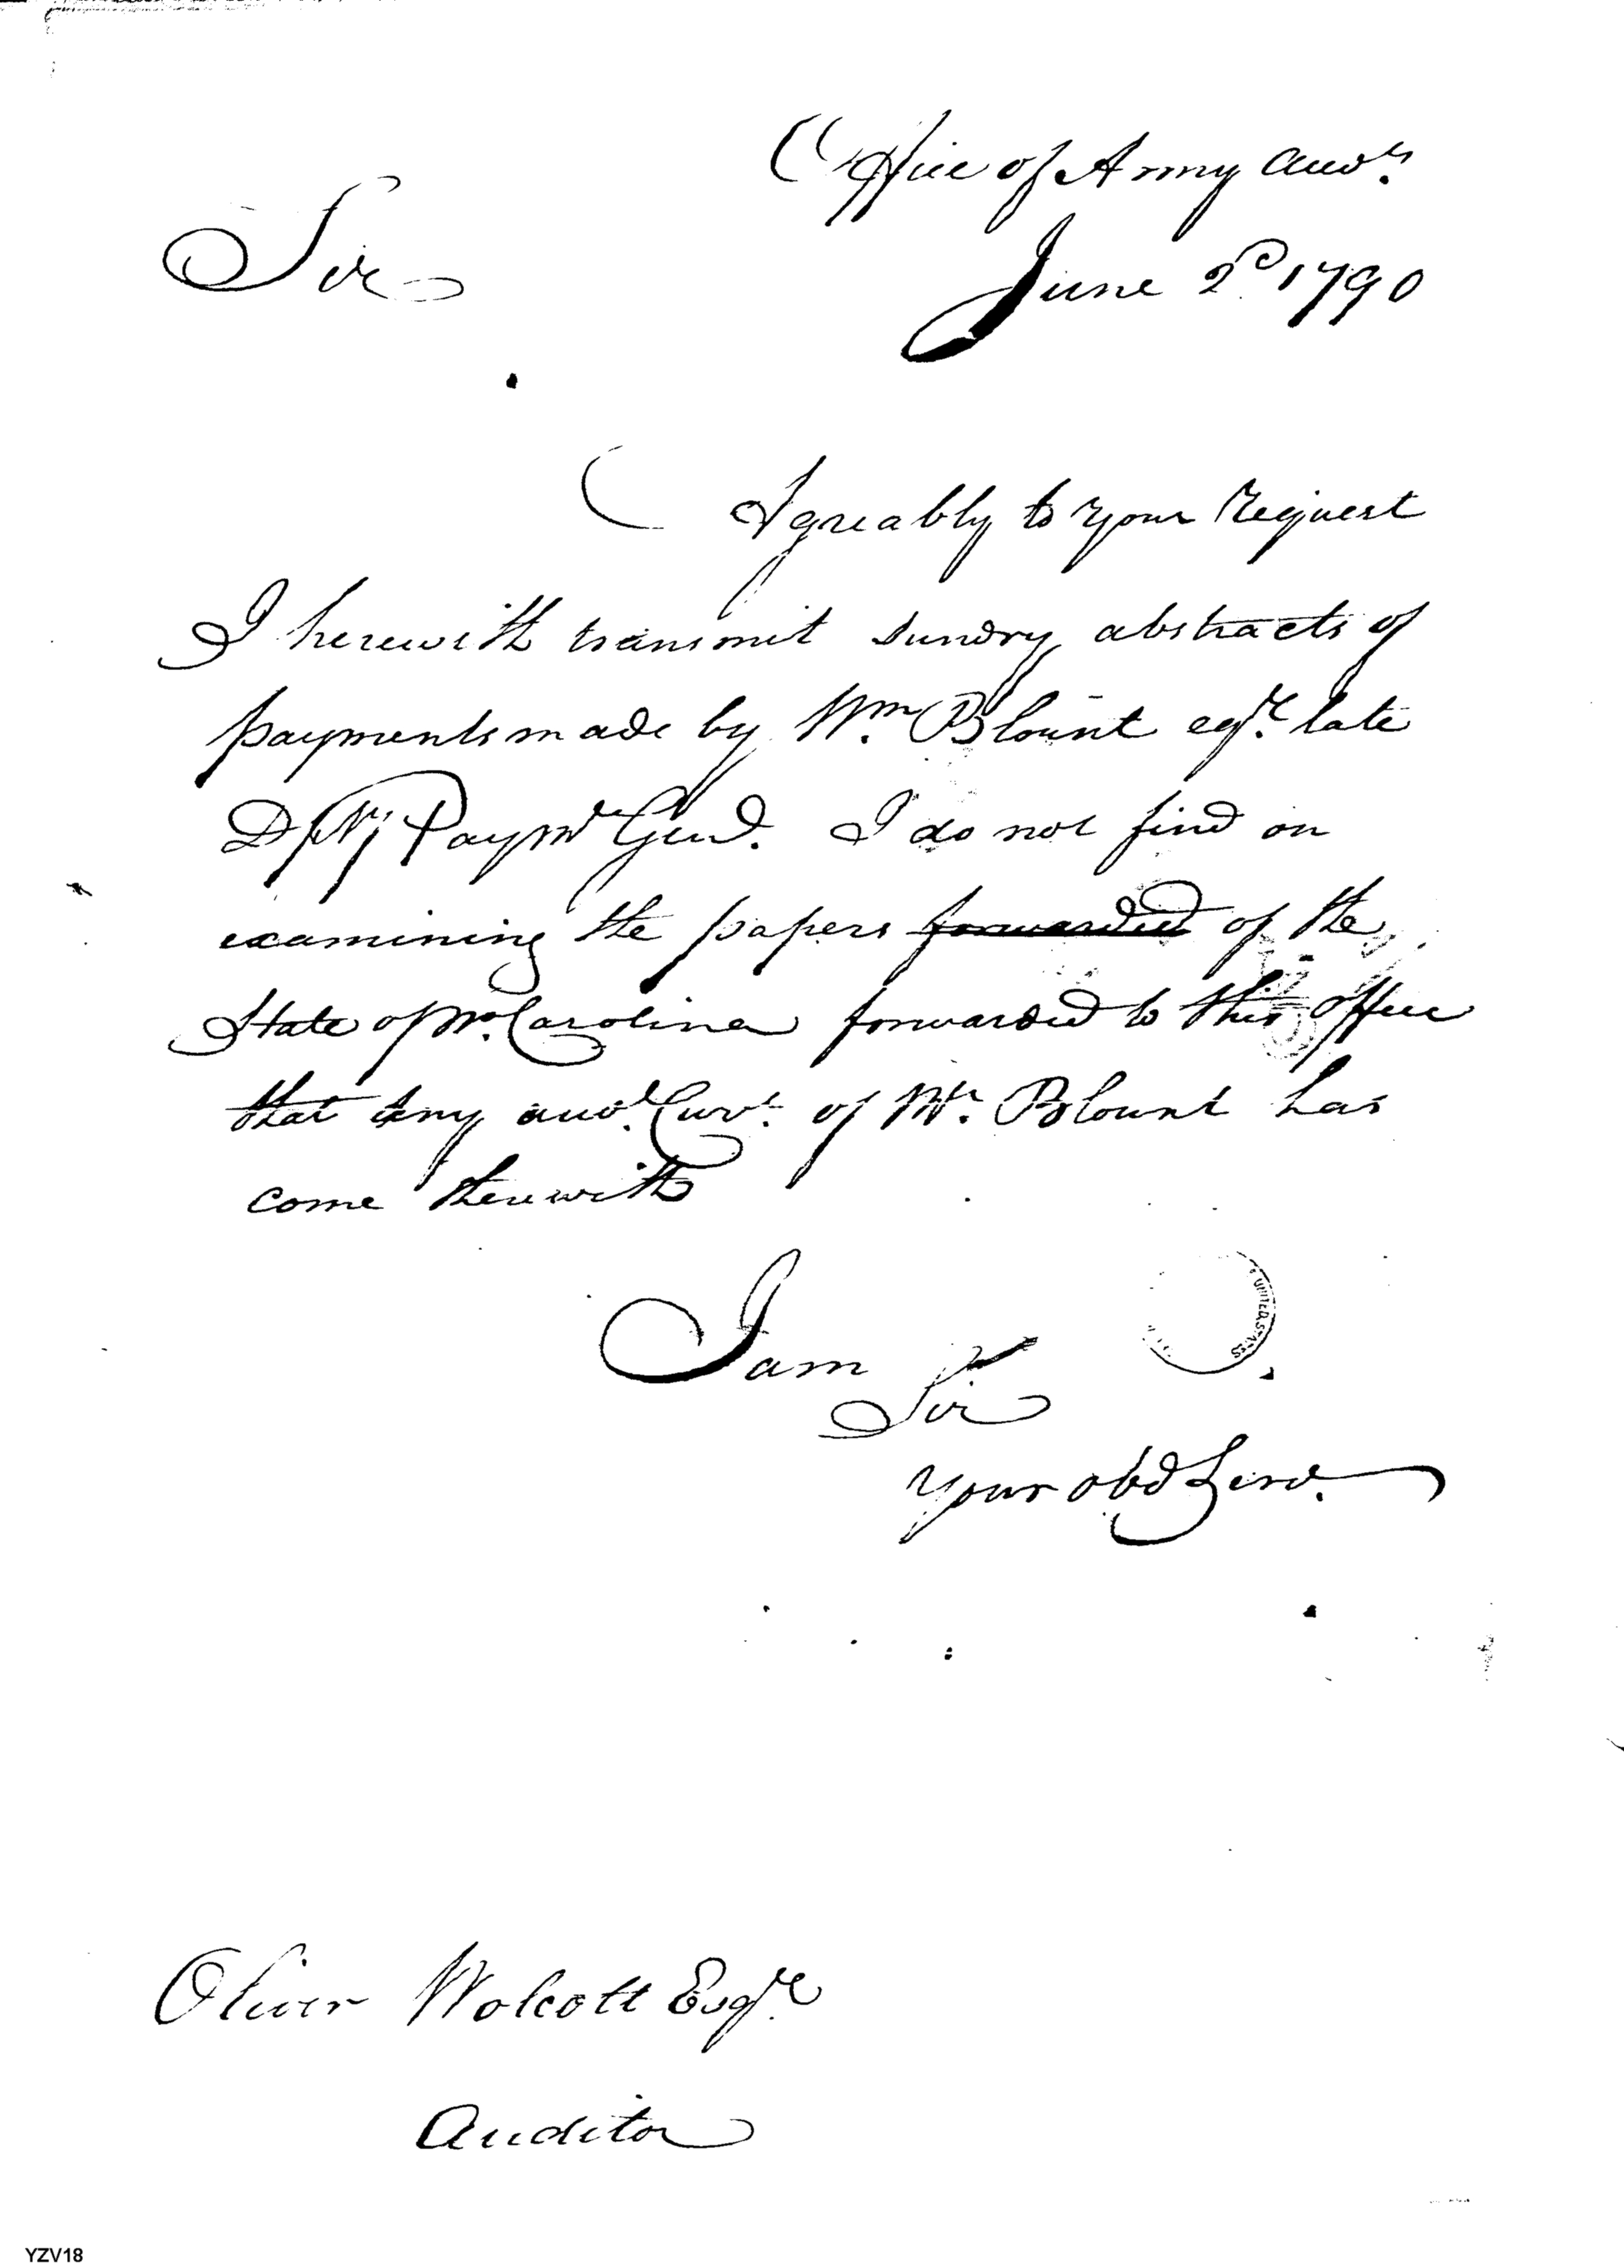 Office of Army Accots.
Sir
June 2d 1790
Agreably to your Request
I herewith transmit sundry abstracts of
payments made by Wm. Blount eqr. late
Dpy Paymr Genl. I do not find on
examining the papers forwarded of the
State of No. Carolina forwarded to this office
that any acco. Curt. of Mr. Blount has
come therewith
I am
Sir
Your obd Serv.
UNITED STATES
Oliver Wolcott Esqre
Auditor
YZV18